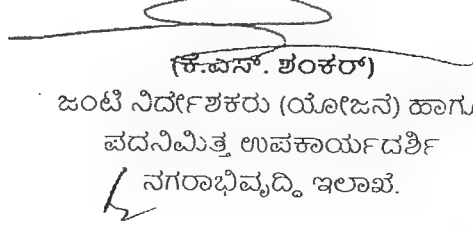 (ಕೆ.ಎಸ್. ಶಂಕರ್)
ಜಂಟಿ ನಿರ್ದೇಶಕರು (ಯೋಜನೆ) ಹಾಗೂ
ಪದನಿಮಿತ್ತ ಉಪಕಾರ್ಯದರ್ಶಿ
ನಗರಾಭಿವೃದ್ಧಿ ಇಲಾಖೆ.